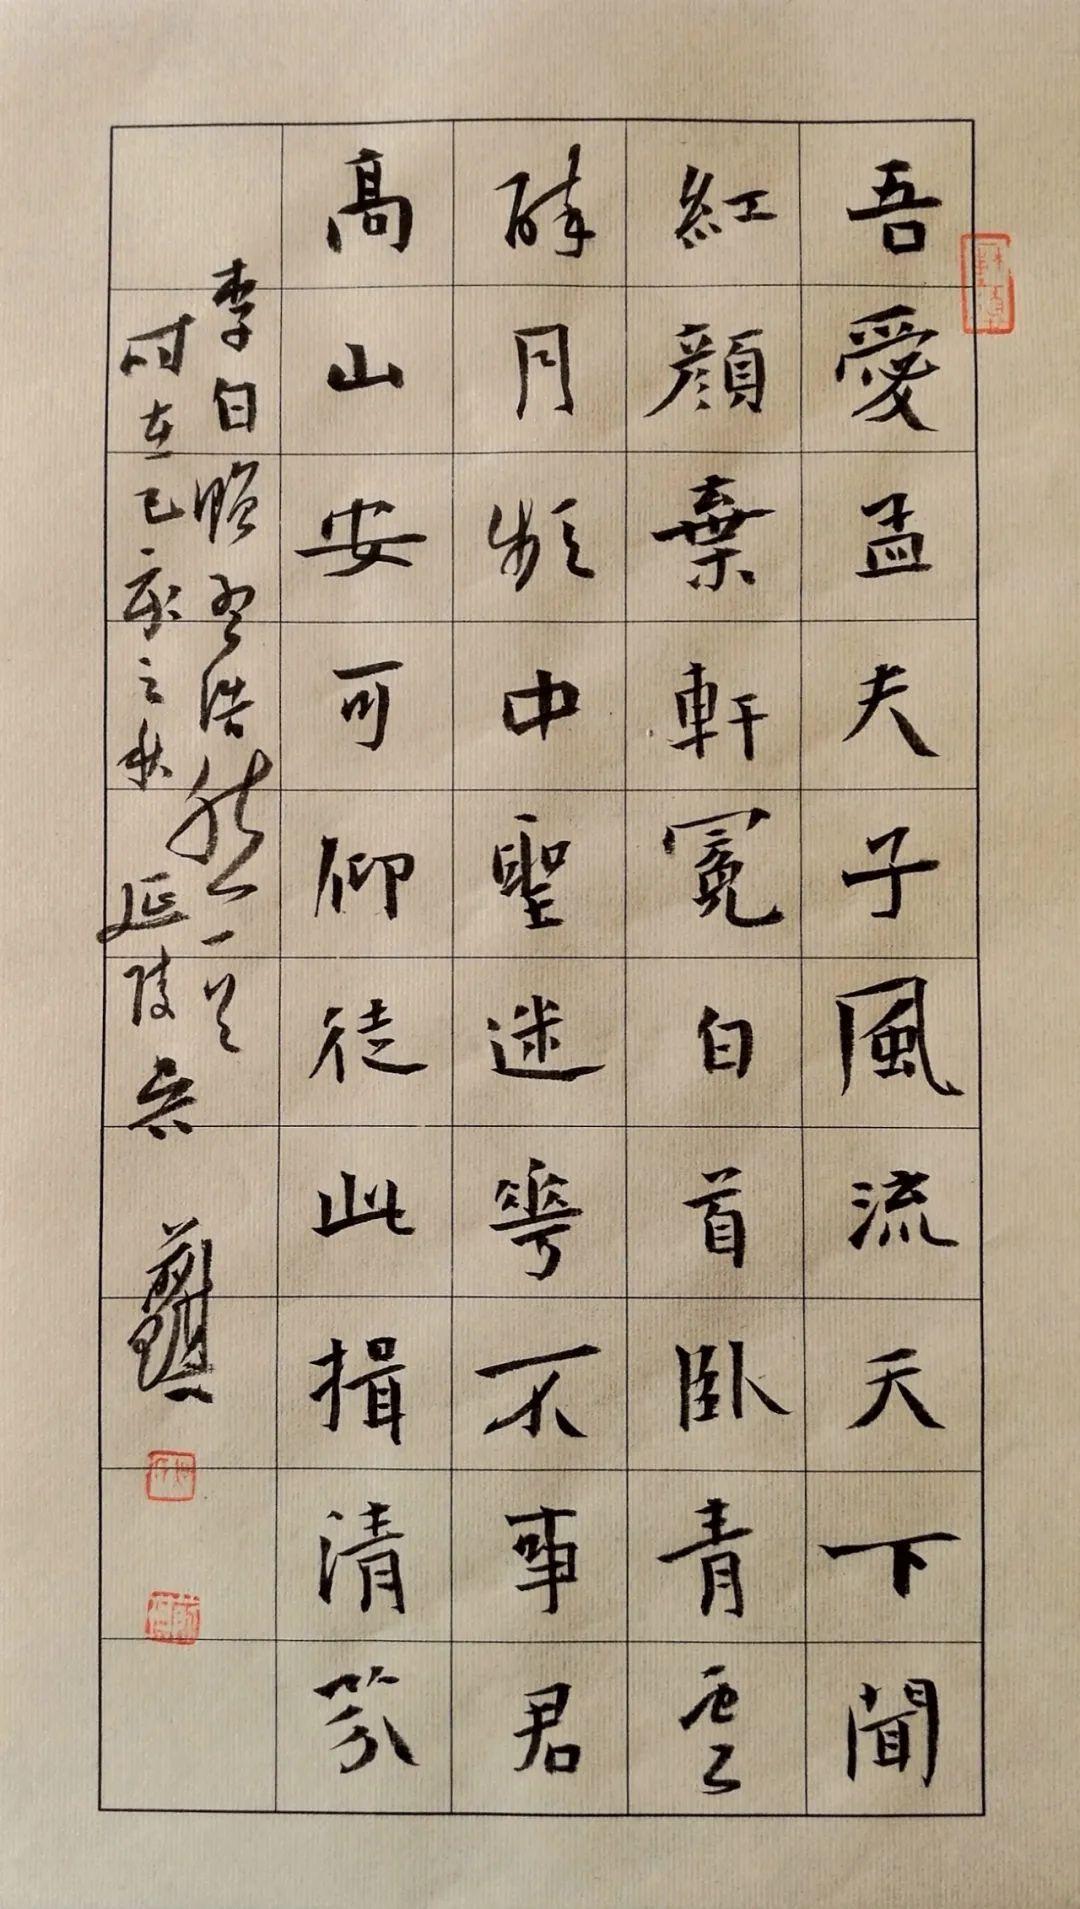 吾愛孟夫子風流天下聞
紅顔棄軒冕白首卧青雲
醉月頻中聖迷華不事君
髙山安可仰徒此揖清芬
李白贈孟浩然一首
时在己亥之秋延陵吴